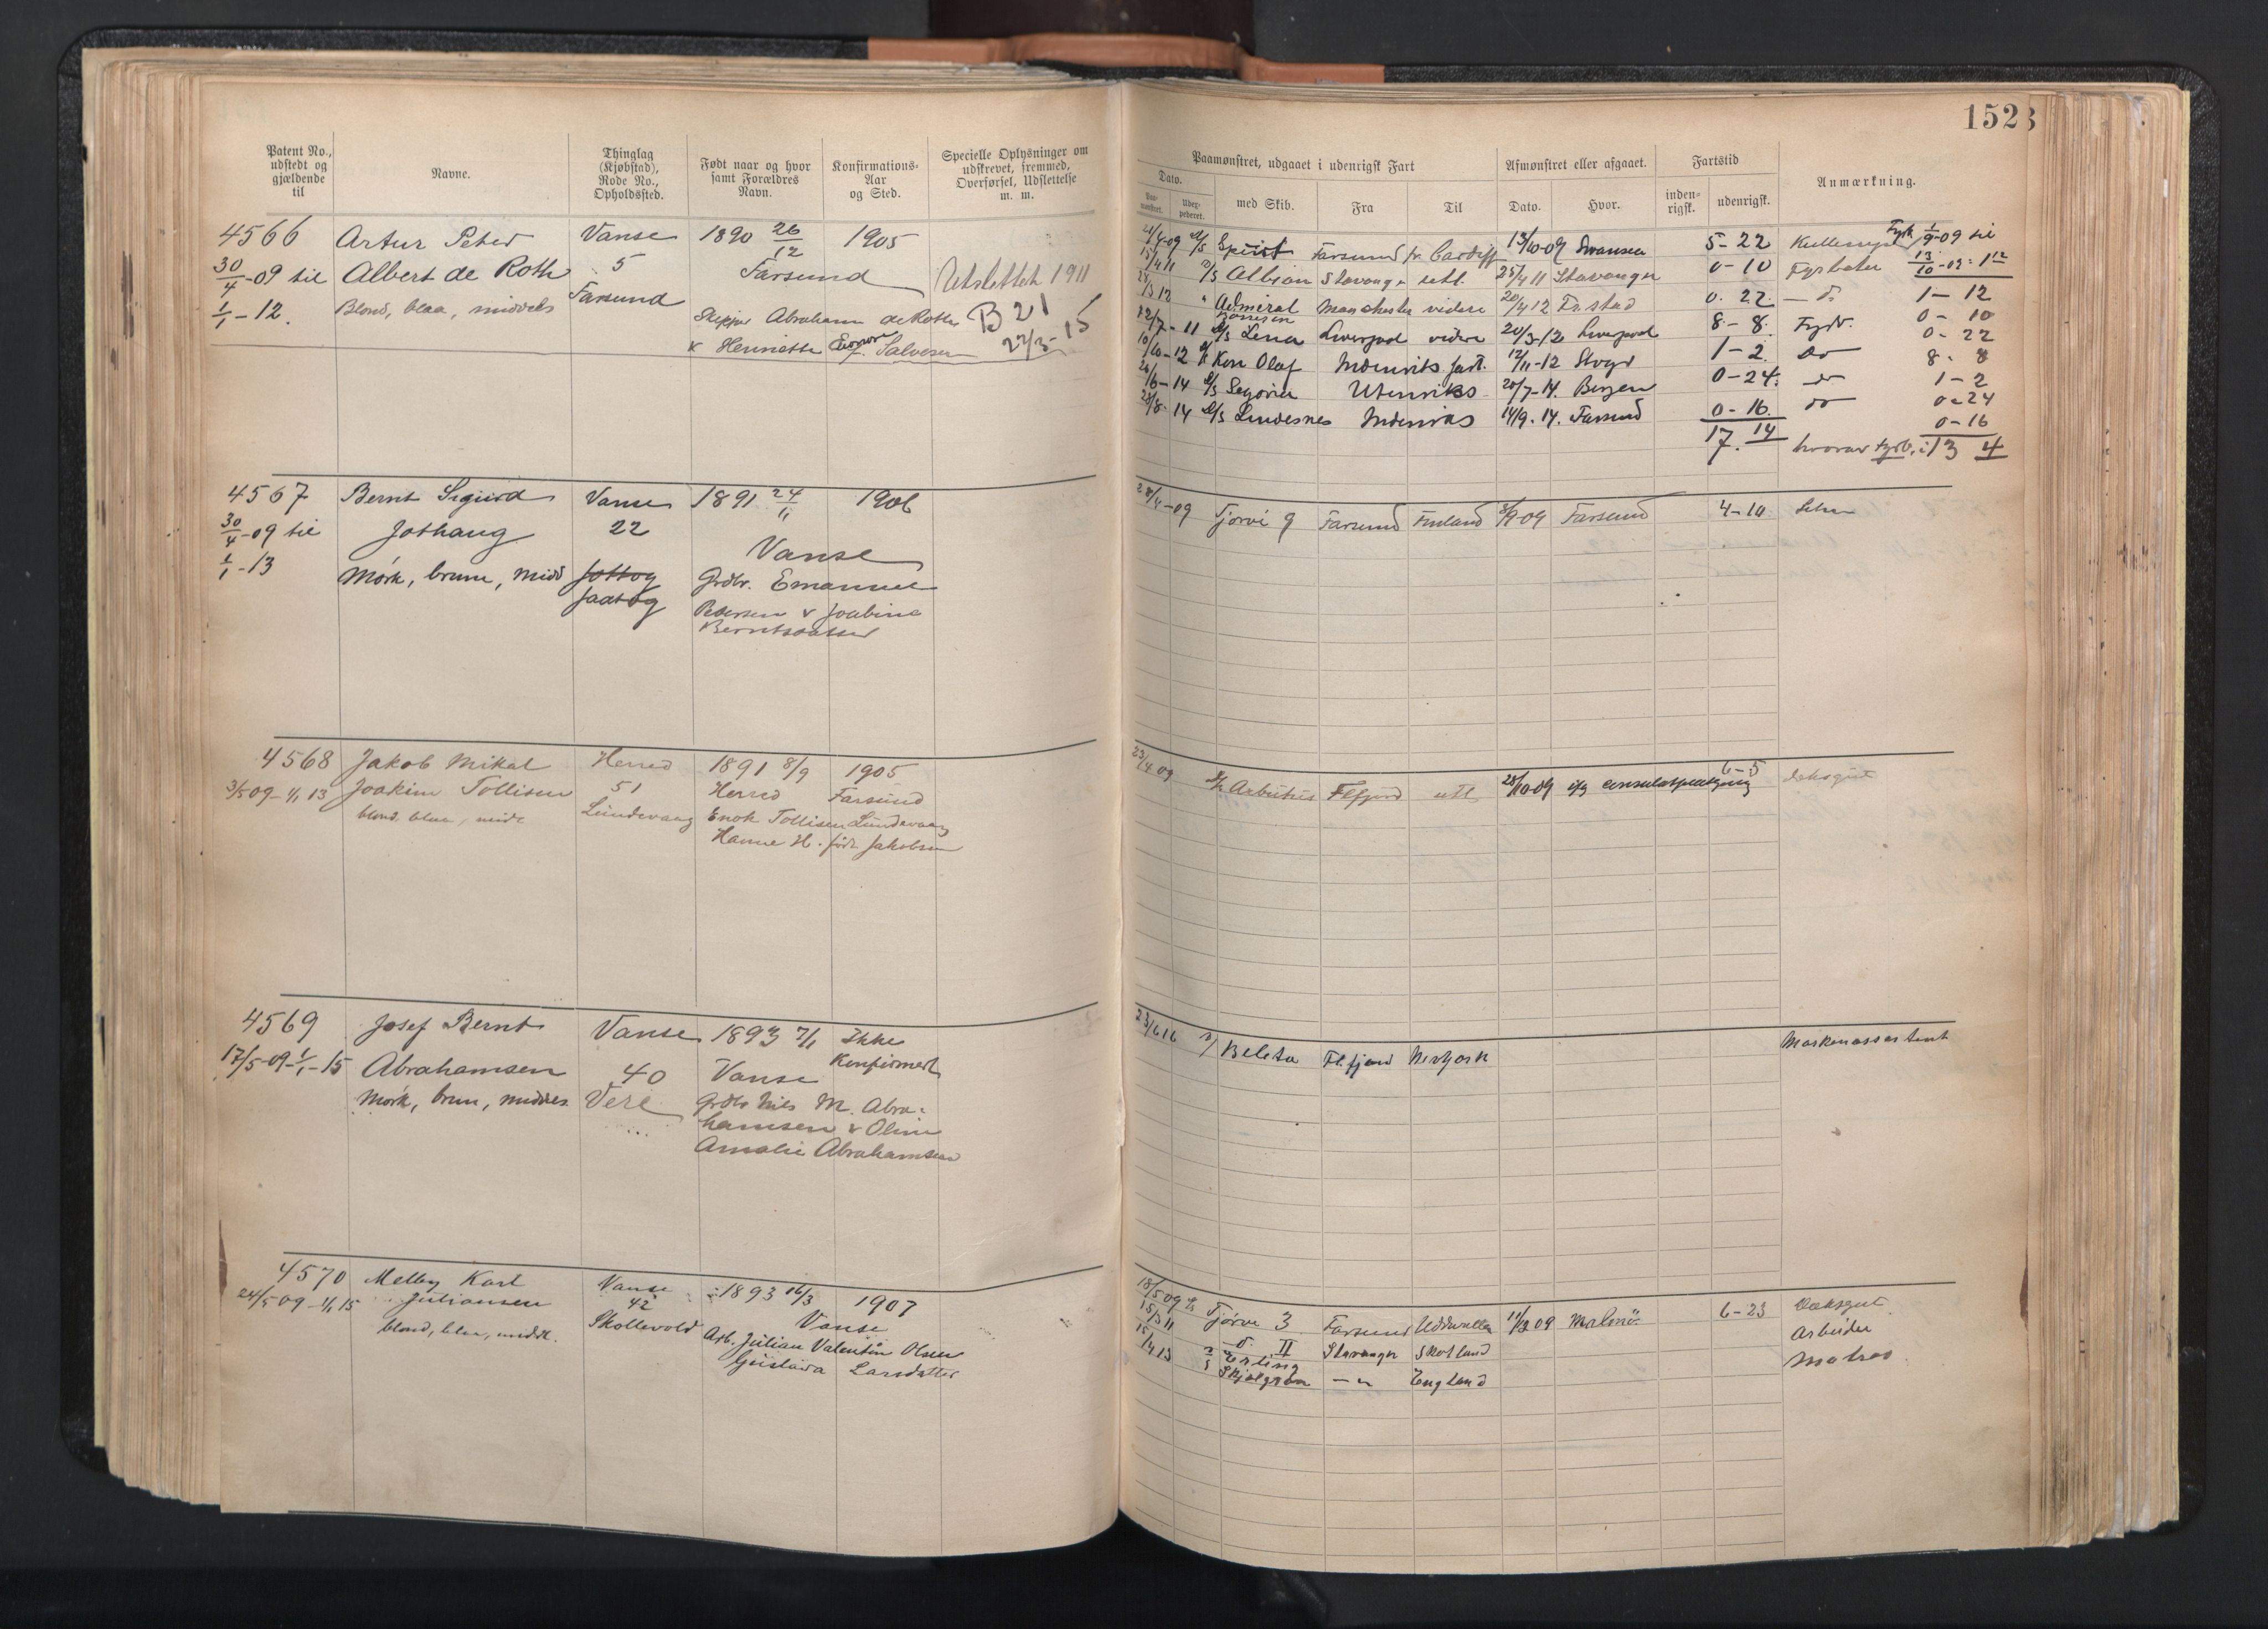 1523
Patent No., udstedt og gjældende til
Navne.
Thinglag (Kjøbstad), Rode No., Opholdssted.
Født naar og hvor samt Forældres Navn.
Konfirmations-Aar og Sted.
Specielle Oplysninger om udskrevet, fremmed, Overførsel, Udslettelse m. m.
Paamønstret, udgaaet i udenrigsk Fart
Afmønstret eller afgaaet.
Fartstid
Anmærkning.
Dato.
med Skib.
Fra
Til
Dato.
Hvor.
inden-rigsk.
udenrigsk.
4566 Artur Peter Vanse 1890 26/12 1905
30/4-09 til Albert de Roth 5 Farsund Utslettet 1911
1/1-12. Blond, blaa, middels Farsund
Skipper Abraham de Roth B 21
v Henriette Salvesen 22/3-15
Spirit Farsund Cardiff 13/10-09 Swansea 5-22 1/9-09 til
Albion Stavanger 25/4 11 Stavanger 0-10 Fyrbøter 13/10-09 = 1 12
Admiral Manchester videre 20/4 12 Fr.stad 0. 22. 1-12
Børresen 0-10
22/7-11 D/S Lena Liverpool videre 20/3-12 Liverpool 8-8. Fyrb. 0-22
10/10-12 Kon Olaf Indenriks fart. 12/11-12 1-2. Do 8-8
26/6-14 D/S Segovia Utenriks 20/7-14. Bergen 0-24. do 1-2
28/8-14 D/S Lindesnes Indenriks 14/9-14. Farsund 0-16. do 0-24
0-16
17. 14 hvorav fyrb. 13 4
4567 Bernt Sigurd Vanse 1891 24/11 1906
30/4-09 til Jothaug 22 Vanse
1/1-13 Mørk, brun, midd Jottog Grdbr. Emanuel
Jaatog Pedersen v Joabine
Berntsdatter
28/4-09 Tjorvi 9 Farsund Finland 8/9-09 Farsund 4-10
4568 Jakob Mikal Herred 1891 8/9 1905
3/5 09-1/1 13 Joakim Tollisen 51 Herred Farsund
blond, blaa, midd Lündevaag Enok Tollisen Lündevaag
Hanne H. født Jakobsen
23/4 09 Arbutus Flfjord utl 28/10-09 6-5 dæksgut
4569 Josef Bernt Vanse 1893 7/1 Ikke
17/5-09-1/1-15 Abrahamsen 40 Vanse Konfirmert
Mørk, brun, middels Vere Grdbr Nils M. Abra-
hamsen v Oline
Amalie Abrahamsen
23/6 16 Beleta Fl.fjord Newyork Maskinassistent
4570 Melby Karl Vanse 1893 16/3 1907
24/5 09-1/1 15 Juliansen 42 Vanse
blond, blaa, middl. Skollevold Arb. Jülian Valentin Olsen
Güstava Larsdatter
18/5 09 Tjørve 3 Farsund Uddevalla 11/12 09 Malmö 6-23 Dæksgut
15/3 11 d. II Stavanger Skotland Arbeider
15/4 13 Erling Skjalgson — " England Matros